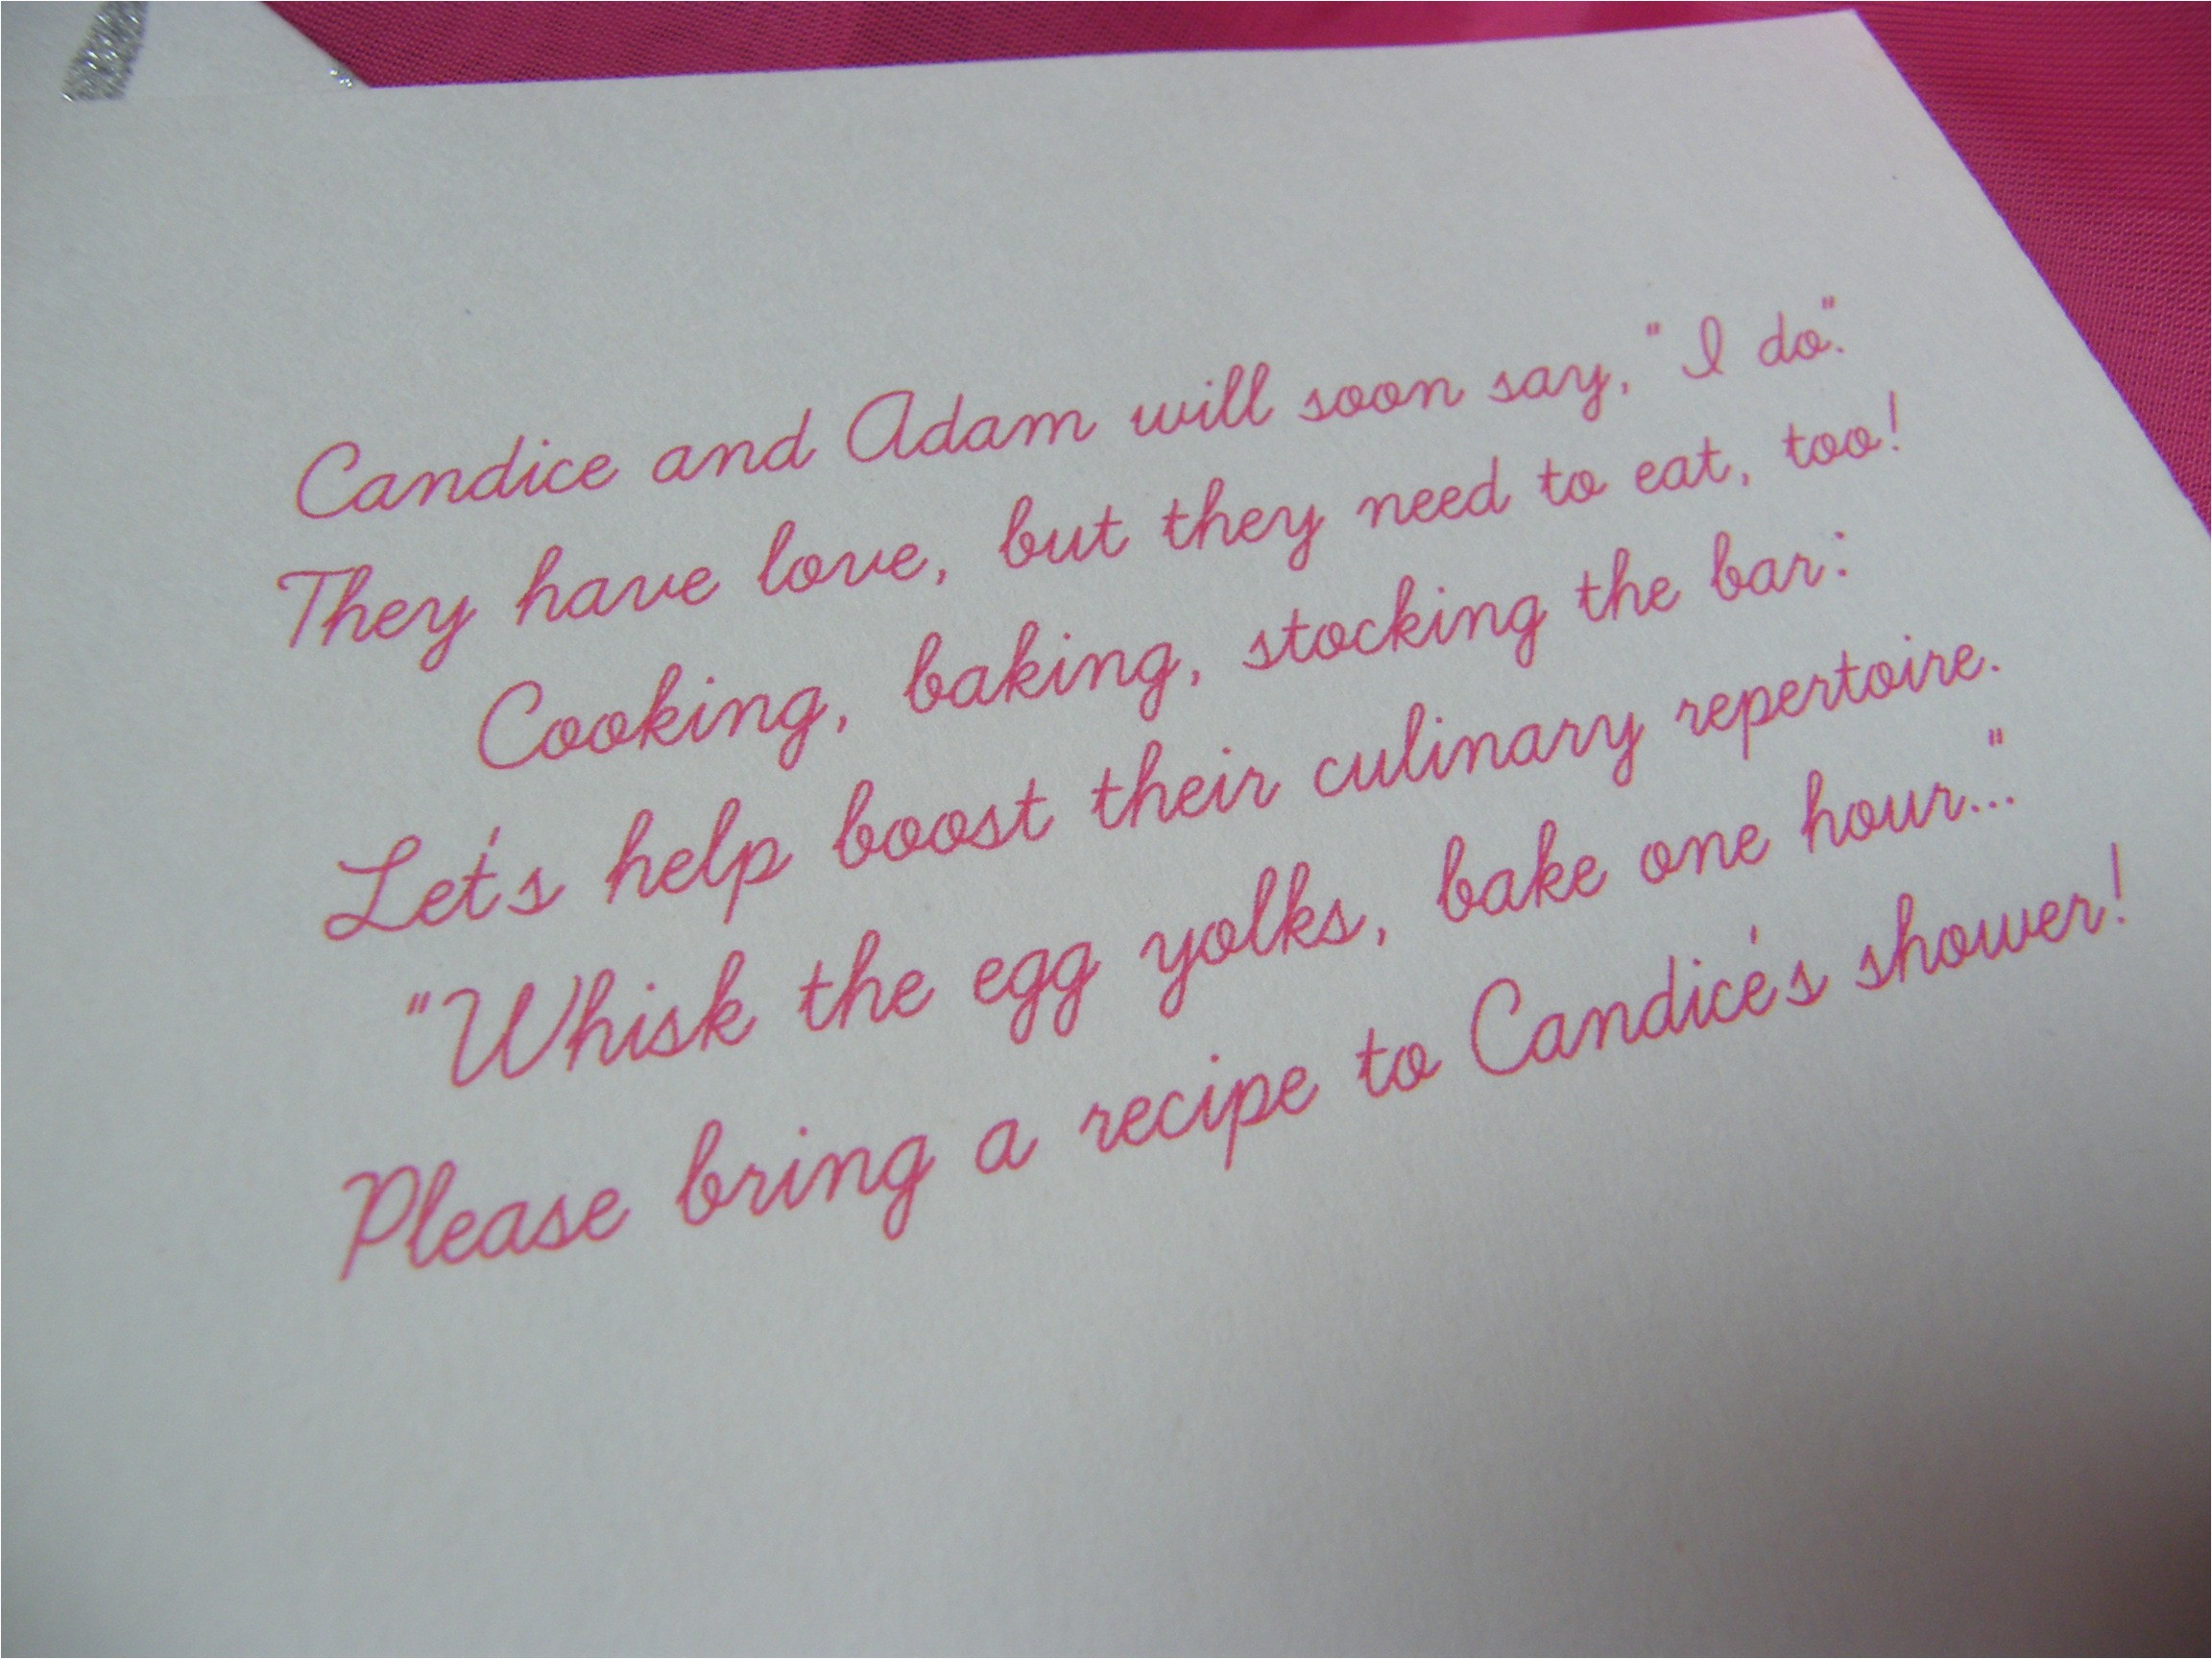 Candice and Adam will soon say, "I do."
They have love, but they need to eat, too!
Cooking, baking, stocking the bar:
Let's help boost their culinary repertoire.
"Whisk the egg yolks, bake one hour..."
Please bring a recipe to Candice's shower!